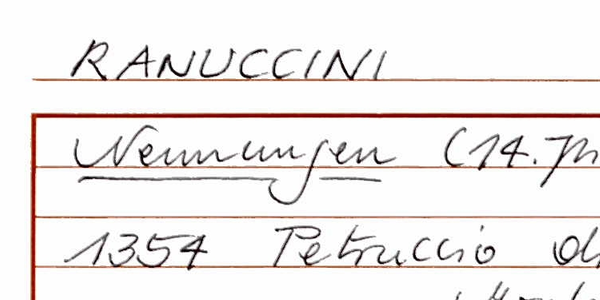 RANUCCINI
Nennungen (14. Jh
1354 Petruccio di